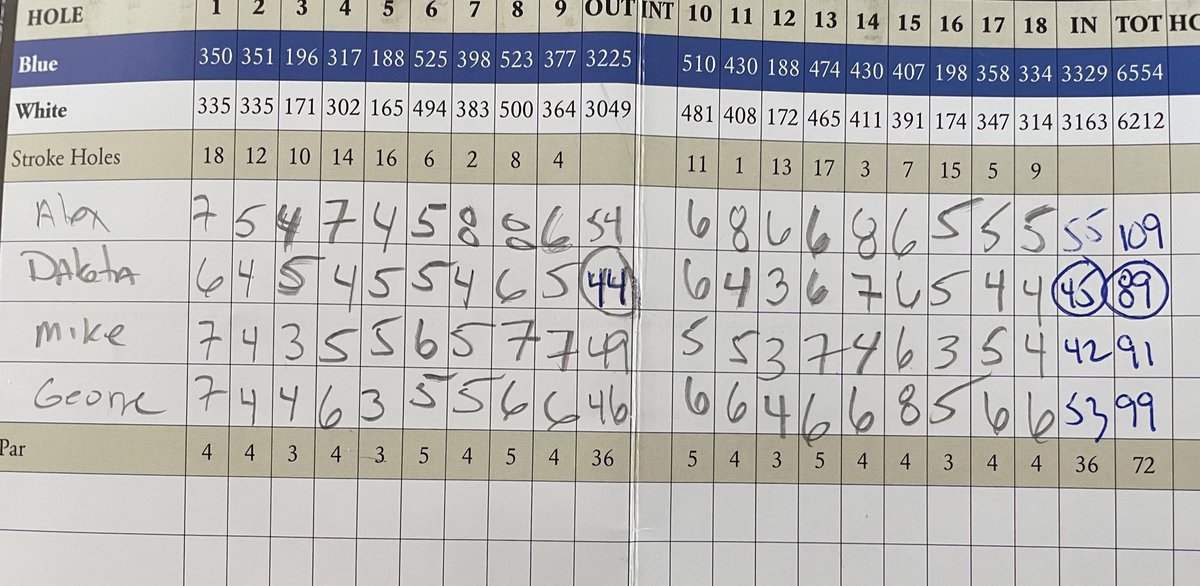 HOLE 1 2 3 4 5 6 7 8 9 OUT INT 10 11 12 13 14 15 16 17 18 IN TOT HC
Blue 350 351 196 317 188 525 398 523 377 3225 510 430 188 474 430 407 198 358 334 3329 6554
White 335 335 171 302 165 494 383 500 364 3049 481 408 172 465 411 391 174 347 314 3163 6212
Stroke Holes 18 12 10 14 16 6 2 8 4 11 1 13 17 3 7 15 5 9
Alex 7 5 4 7 4 5 8 8 6 54 6 8 6 6 8 6 5 5 5 55 109
DAkotA 6 4 5 4 5 5 4 6 5 44 6 4 3 6 7 6 5 4 4 45 89
Mike 7 4 3 5 5 6 5 7 7 49 5 5 3 7 4 6 3 5 4 42 91
George 7 4 4 6 3 5 5 6 6 46 6 6 4 6 6 8 5 6 6 53 99
Par 4 4 3 4 3 5 4 5 4 36 5 4 3 5 4 4 3 4 4 36 72